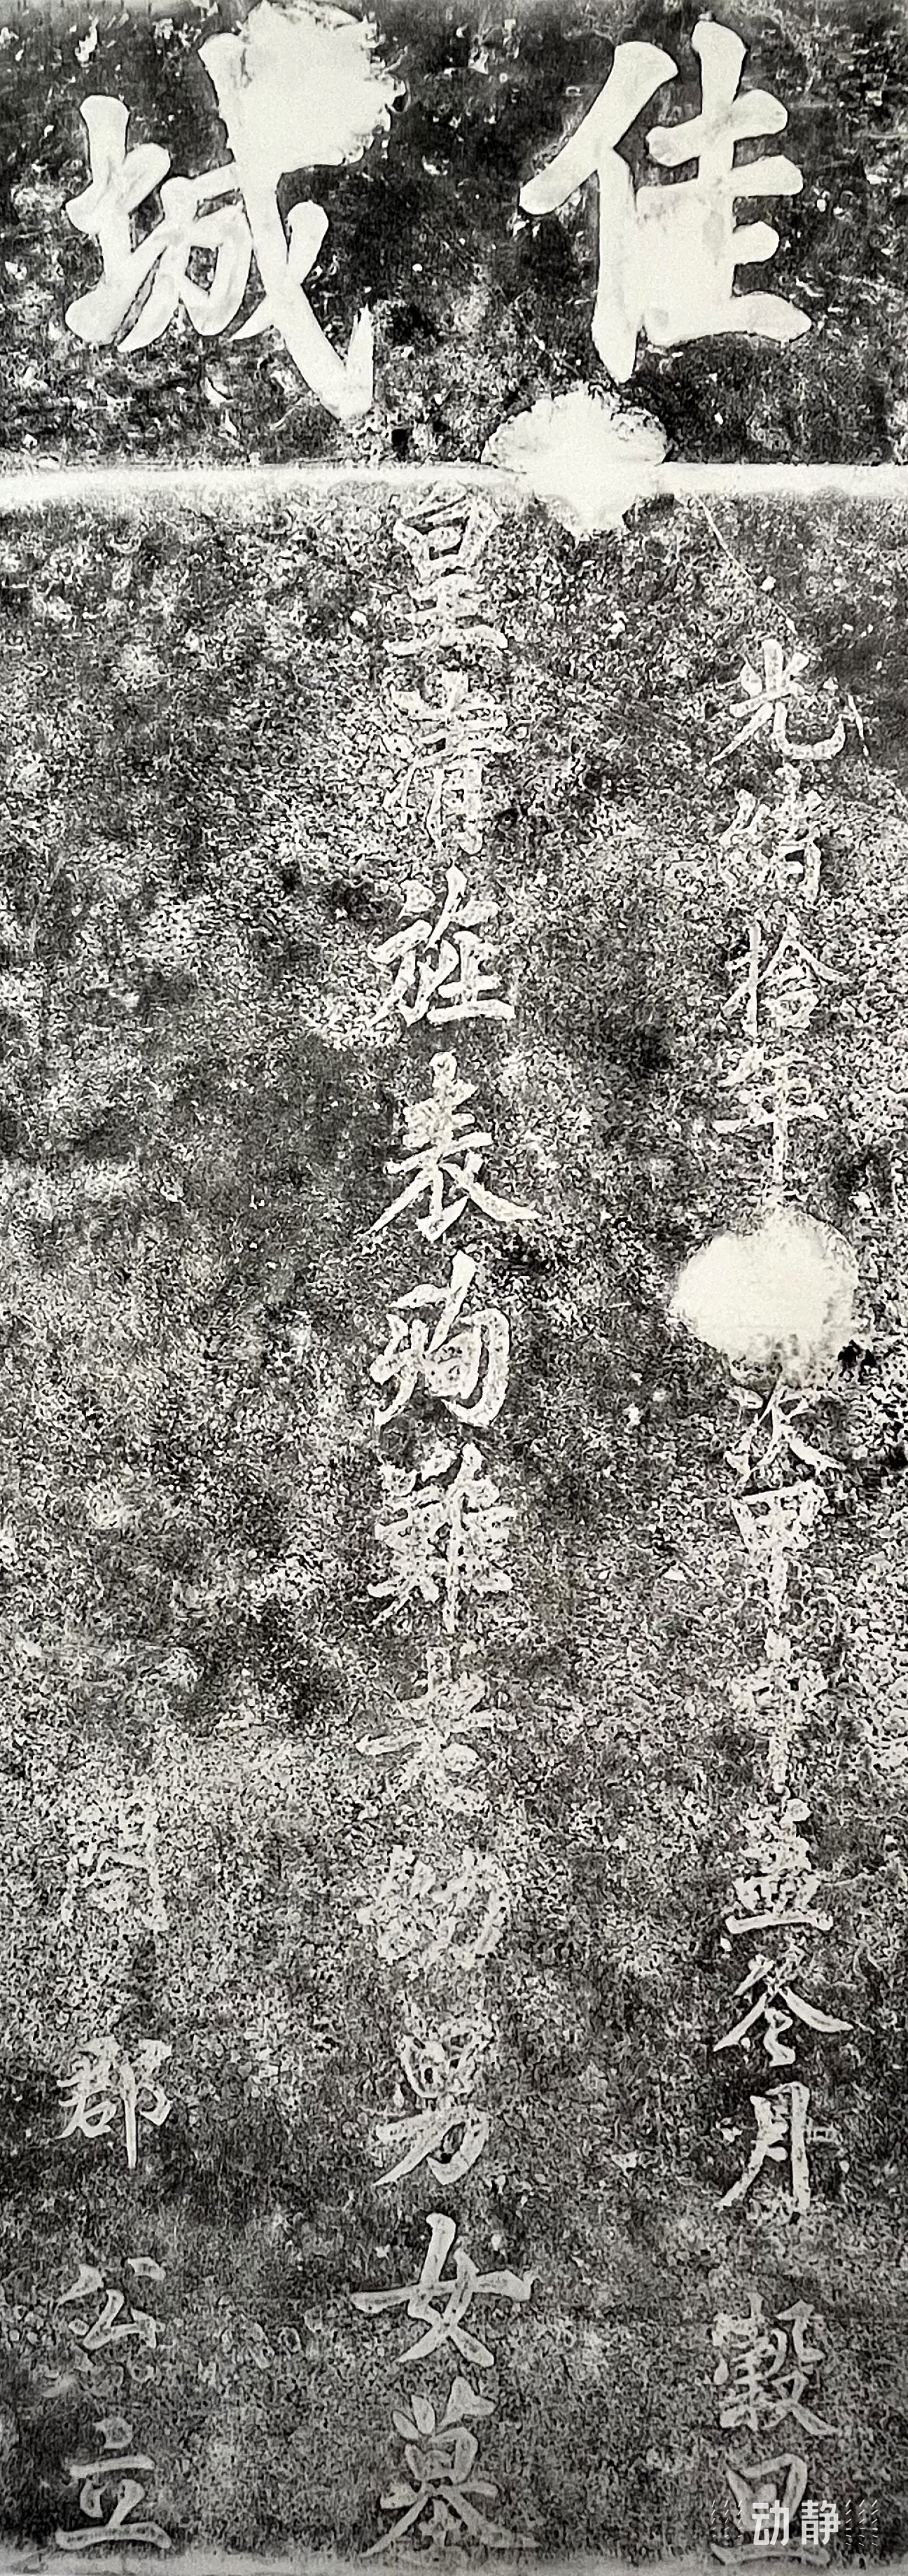 佳城
光緒拾年次甲申孟冬月穀旦
皇清旌表殉難老幼男女墓
郡公立
动静